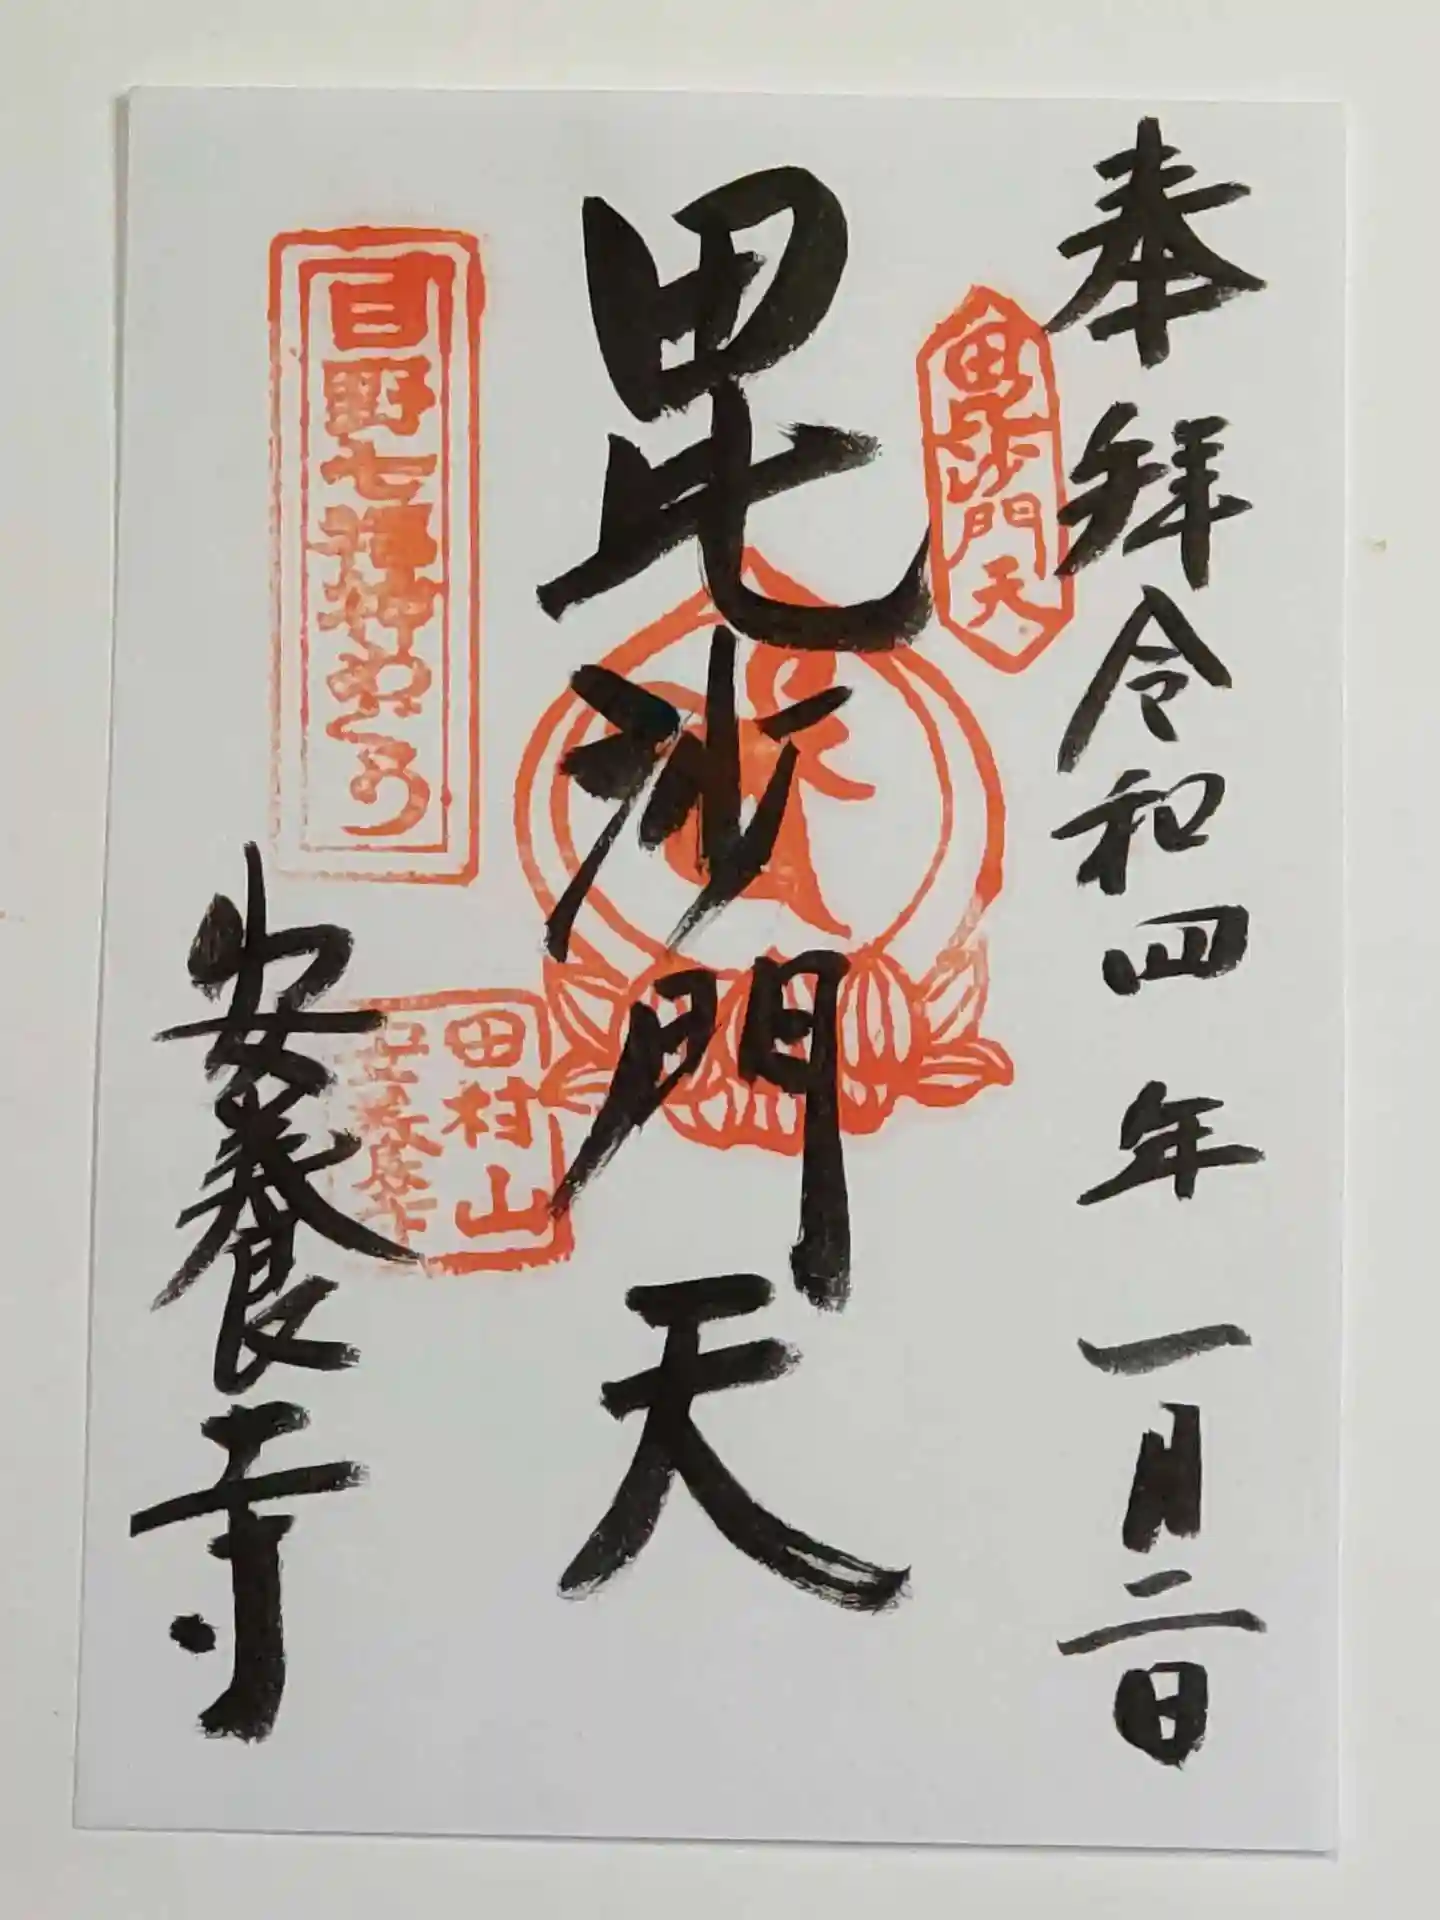 奉拜令和四年一月二日
毘沙門天
毘沙門天
日野七福神めぐり
田村山
安養寺
安養寺